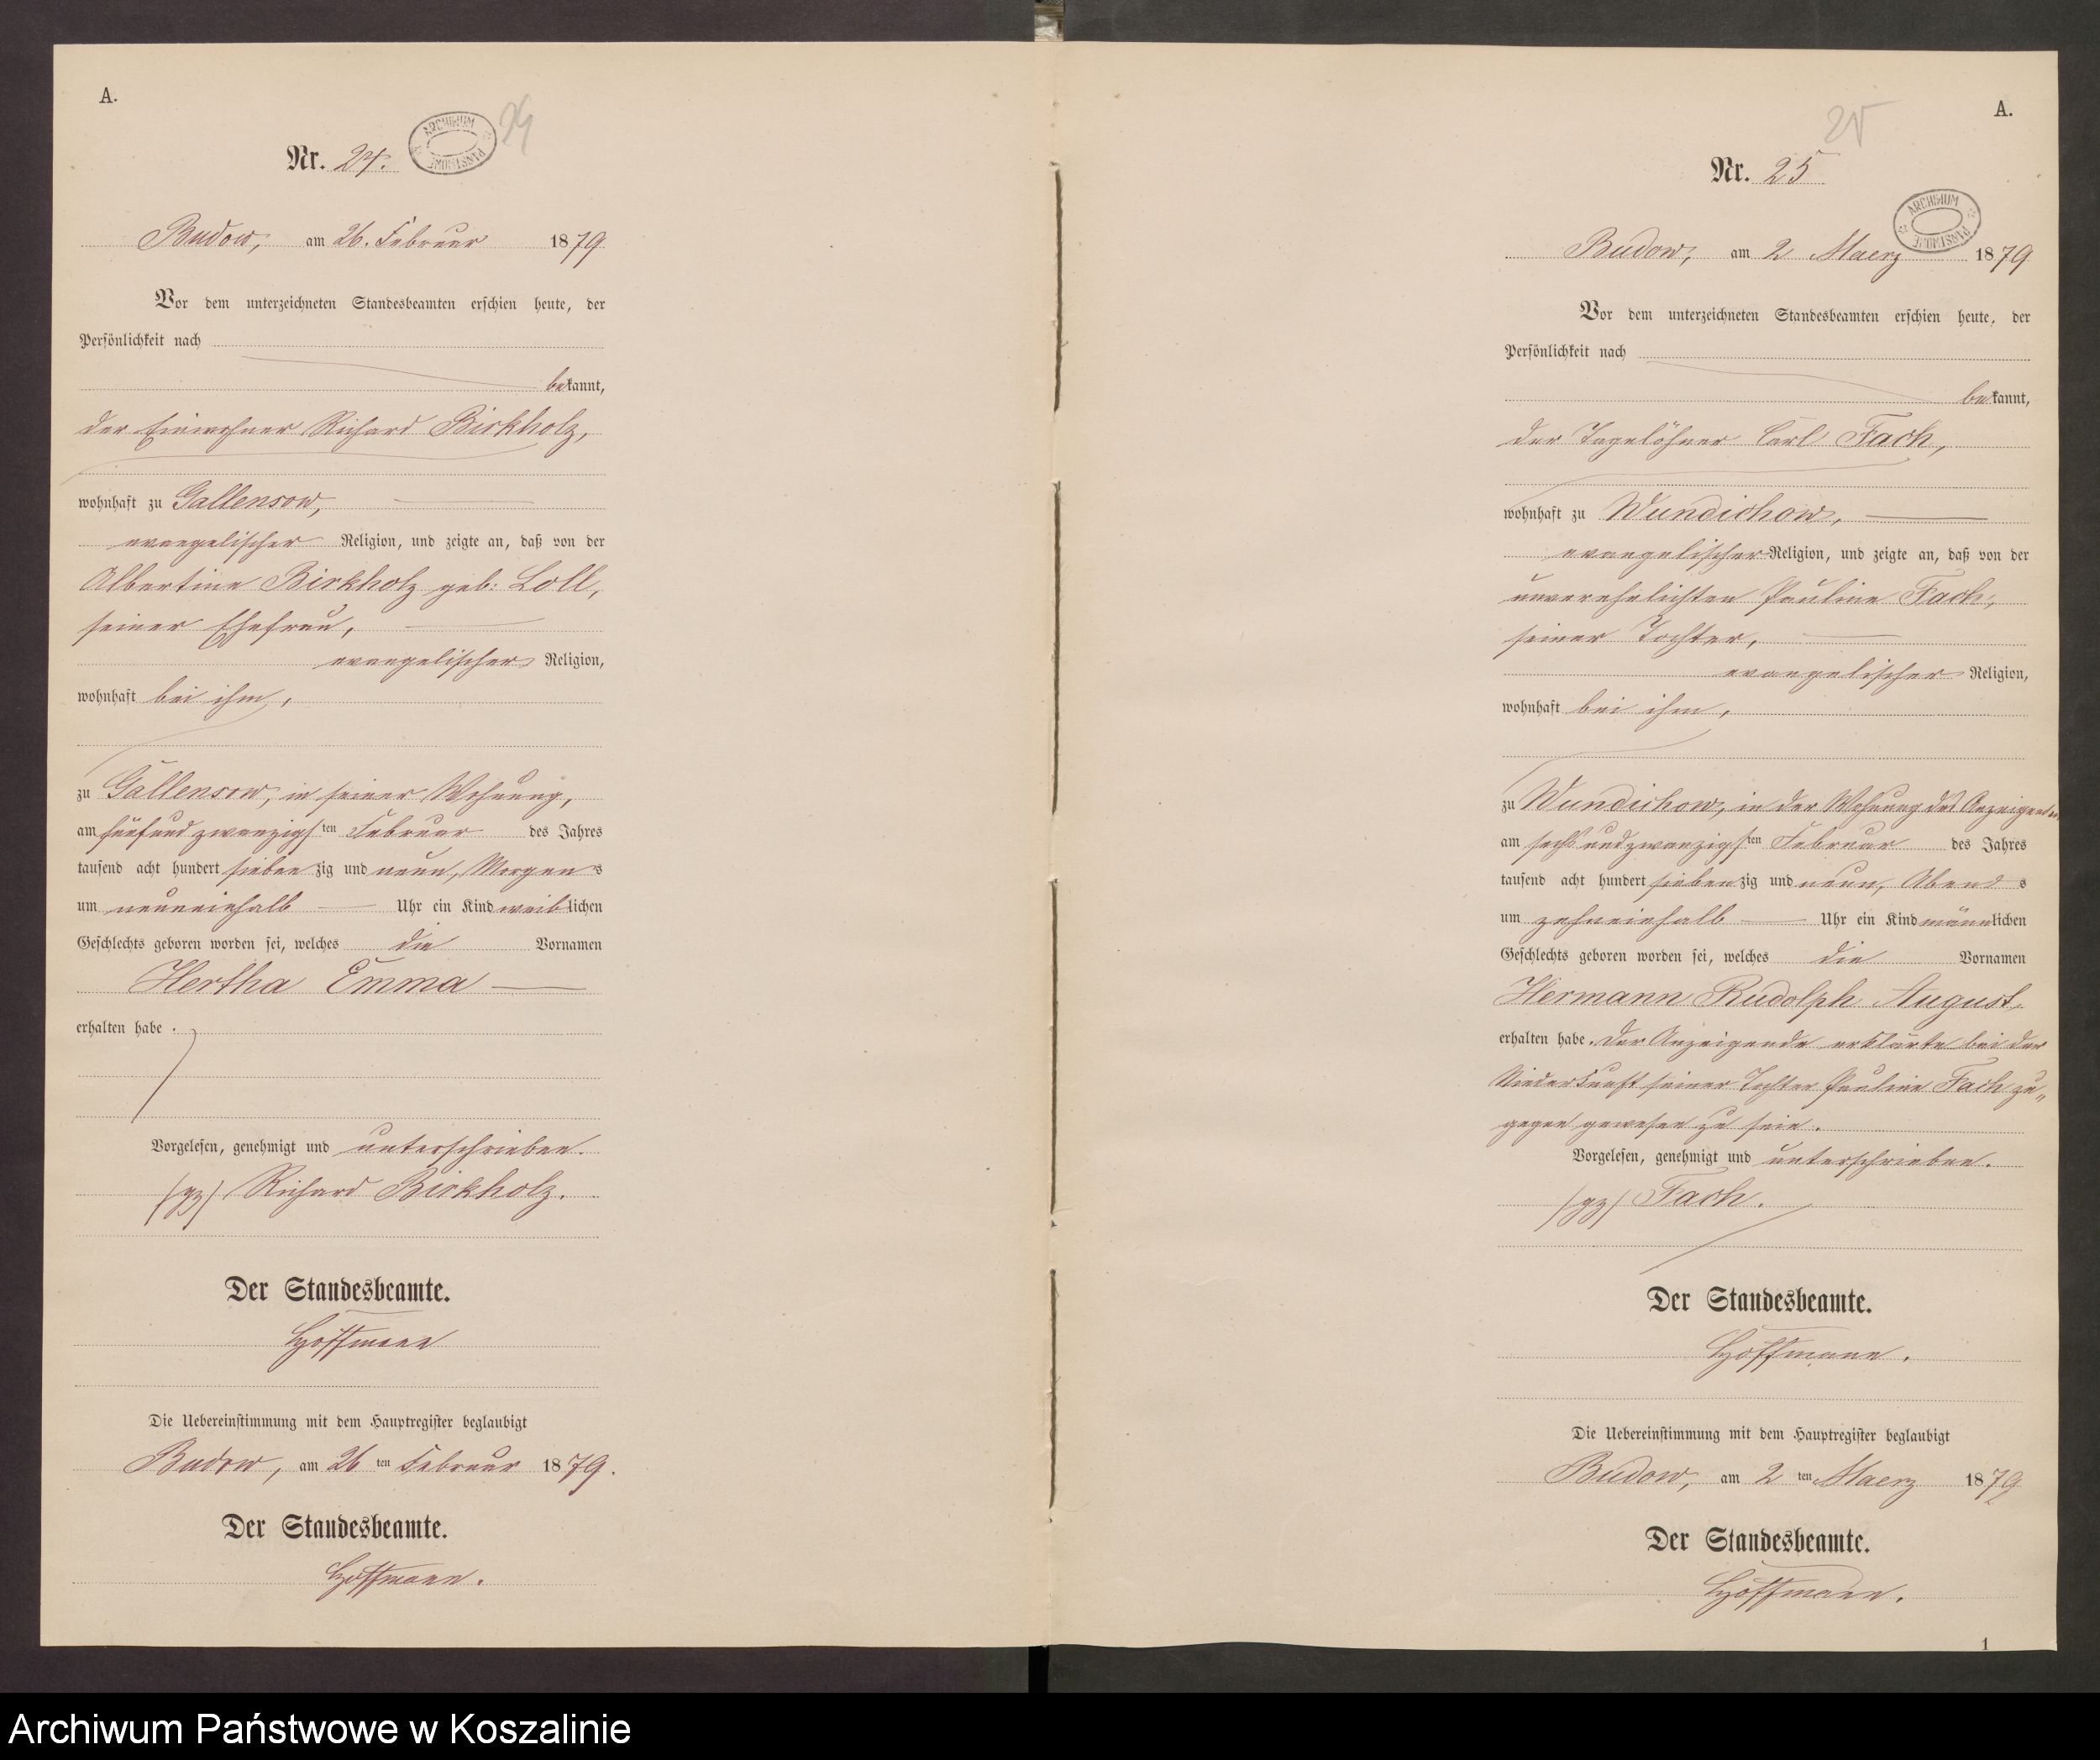 A.
Nr. 24.
ARCHIWUM PAŃSTWOWE
24
Budow, am 26. Februar 1879
Vor dem unterzeichneten Standesbeamten erschien heute, der
Persönlichkeit nach
bekannt,
der Einwohner Richard Birkholz,
wohnhaft zu Gallensow,
evangelischer Religion, und zeigte an, daß von der
Albertine Birkholz geb: Loll,
seiner Ehefrau,
evangelischer Religion,
wohnhaft bei ihm,
zu Gallensow, in seiner Wohnung,
am fünfundzwanzigsten Februar des Jahres
tausend acht hundert siebenzig und neun, Morgens
um neuneinhalb Uhr ein Kind weiblichen
Geschlechts geboren worden sei, welches die Vornamen
Hertha Emma
erhalten habe.
Vorgelesen, genehmigt und unterschrieben.
(gz) Richard Birkholz.
Der Standesbeamte.
Hoffmann
Die Uebereinstimmung mit dem Hauptregister beglaubigt
Budow, am 26ten Februar 1879.
Der Standesbeamte.
Hoffmann.
A.
25
Nr. 25
ARCHIWUM PAŃSTWOWE
Budow, am 2 Maerz 1879
Vor dem unterzeichneten Standesbeamten erschien heute, der
Persönlichkeit nach
bekannt,
der Tagelöhner Carl Fach,
wohnhaft zu Wundichow,
evangelischer Religion, und zeigte an, daß von der
unverehelichten Pauline Fach,
seiner Tochter,
evangelischer Religion,
wohnhaft bei ihm,
zu Wundichow, in der Wohnung des Anzeigenden,
am sechsundzwanzigsten Februar des Jahres
tausend acht hundert siebenzig und neun, Abends
um zehneinhalb Uhr ein Kind männlichen
Geschlechts geboren worden sei, welches die Vornamen
Hermann Rudolph August
erhalten habe. Der Anzeigende erklärte bei der
Niederkunft seiner Tochter Pauline Fach zu„
gegen gewesen zu sein.
Vorgelesen, genehmigt und unterschrieben.
(gz) Fach.
Der Standesbeamte.
Hoffmann.
Die Uebereinstimmung mit dem Hauptregister beglaubigt
Budow, am 2ten Maerz 1879
Der Standesbeamte.
Hoffmann.
1
Archiwum Państwowe w Koszalinie